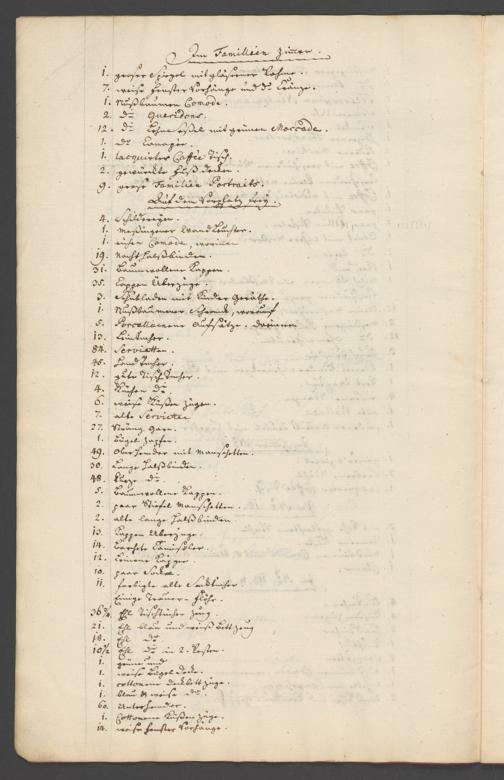 Im Familien Zimer.
1. groser Spiegel mit gläserner Rahme.
7. weise Fenster Vorhänge und d° Kränze.
1. Nußbaumen Comode.
2. d° Queridons.
12. d° Lehnseßel mit grünen Moccade.
1. d° Canapee.
1. lacquirter Caffée Tisch.
2. gewürckte Fuß decken.
9. grose Familien Portraits.
Auf dem Vorplatz
4. Schildereyen.
1. Meßingener Wandleuchter.
1. eichen Comode, worinn
19. Nacht Halsbinden.
31. Baumwollene Kappen.
35. Kappen Überzüge.
3. Schubladen mit Kinder Geräthe.
1. Nußbaumener Schranck, worauf
5. Porcellainene Aufsätze. darinnen
13. Leintücher.
84. Servietten.
48. Handtücher.
12. gute Tischtücher.
4. Küchen d°
6. weise Küßen Zügen.
7. alte Servietten
27. Sträng Garn.
1. Bügel
49. Oberhemder mit Manschetten.
30. lange Halsbinden.
48. kurze d°
5. baumwollene Kappen.
2. paar Stiefel Manschetten.
2. alte lange Halsbinden.
13. Kappen Überzüge.
14. Camisöler.
12. leinene
10. paar Socken.
11. farbigte alte Sacktücher.
Einige Trauer-Flöhr.
36¾ Ehl Tischtücher Zeug.
21. Ehl blau und weiß Bettzeug
18. Ehl d°
10½ Ehl d° in 2. Resten.
1. grüne und
1. weise Bügel Decke.
1. cottonene deckbett züge.
1. blau & weise d°
60. Unterhemder.
1. Cottonene Küßen züge.
14. weise Fenster Vorhänge.